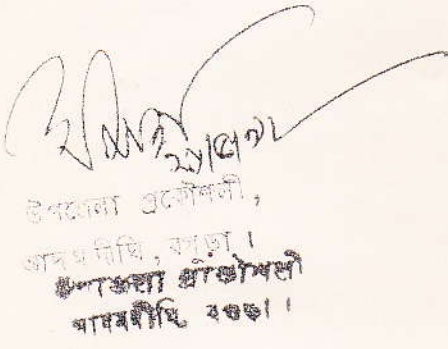 উপজেলা প্রকৌশলী,
আদমদীঘি, বগুড়া।
উপজেলা প্রকৌশলী
আদমদীঘি বগুড়া।